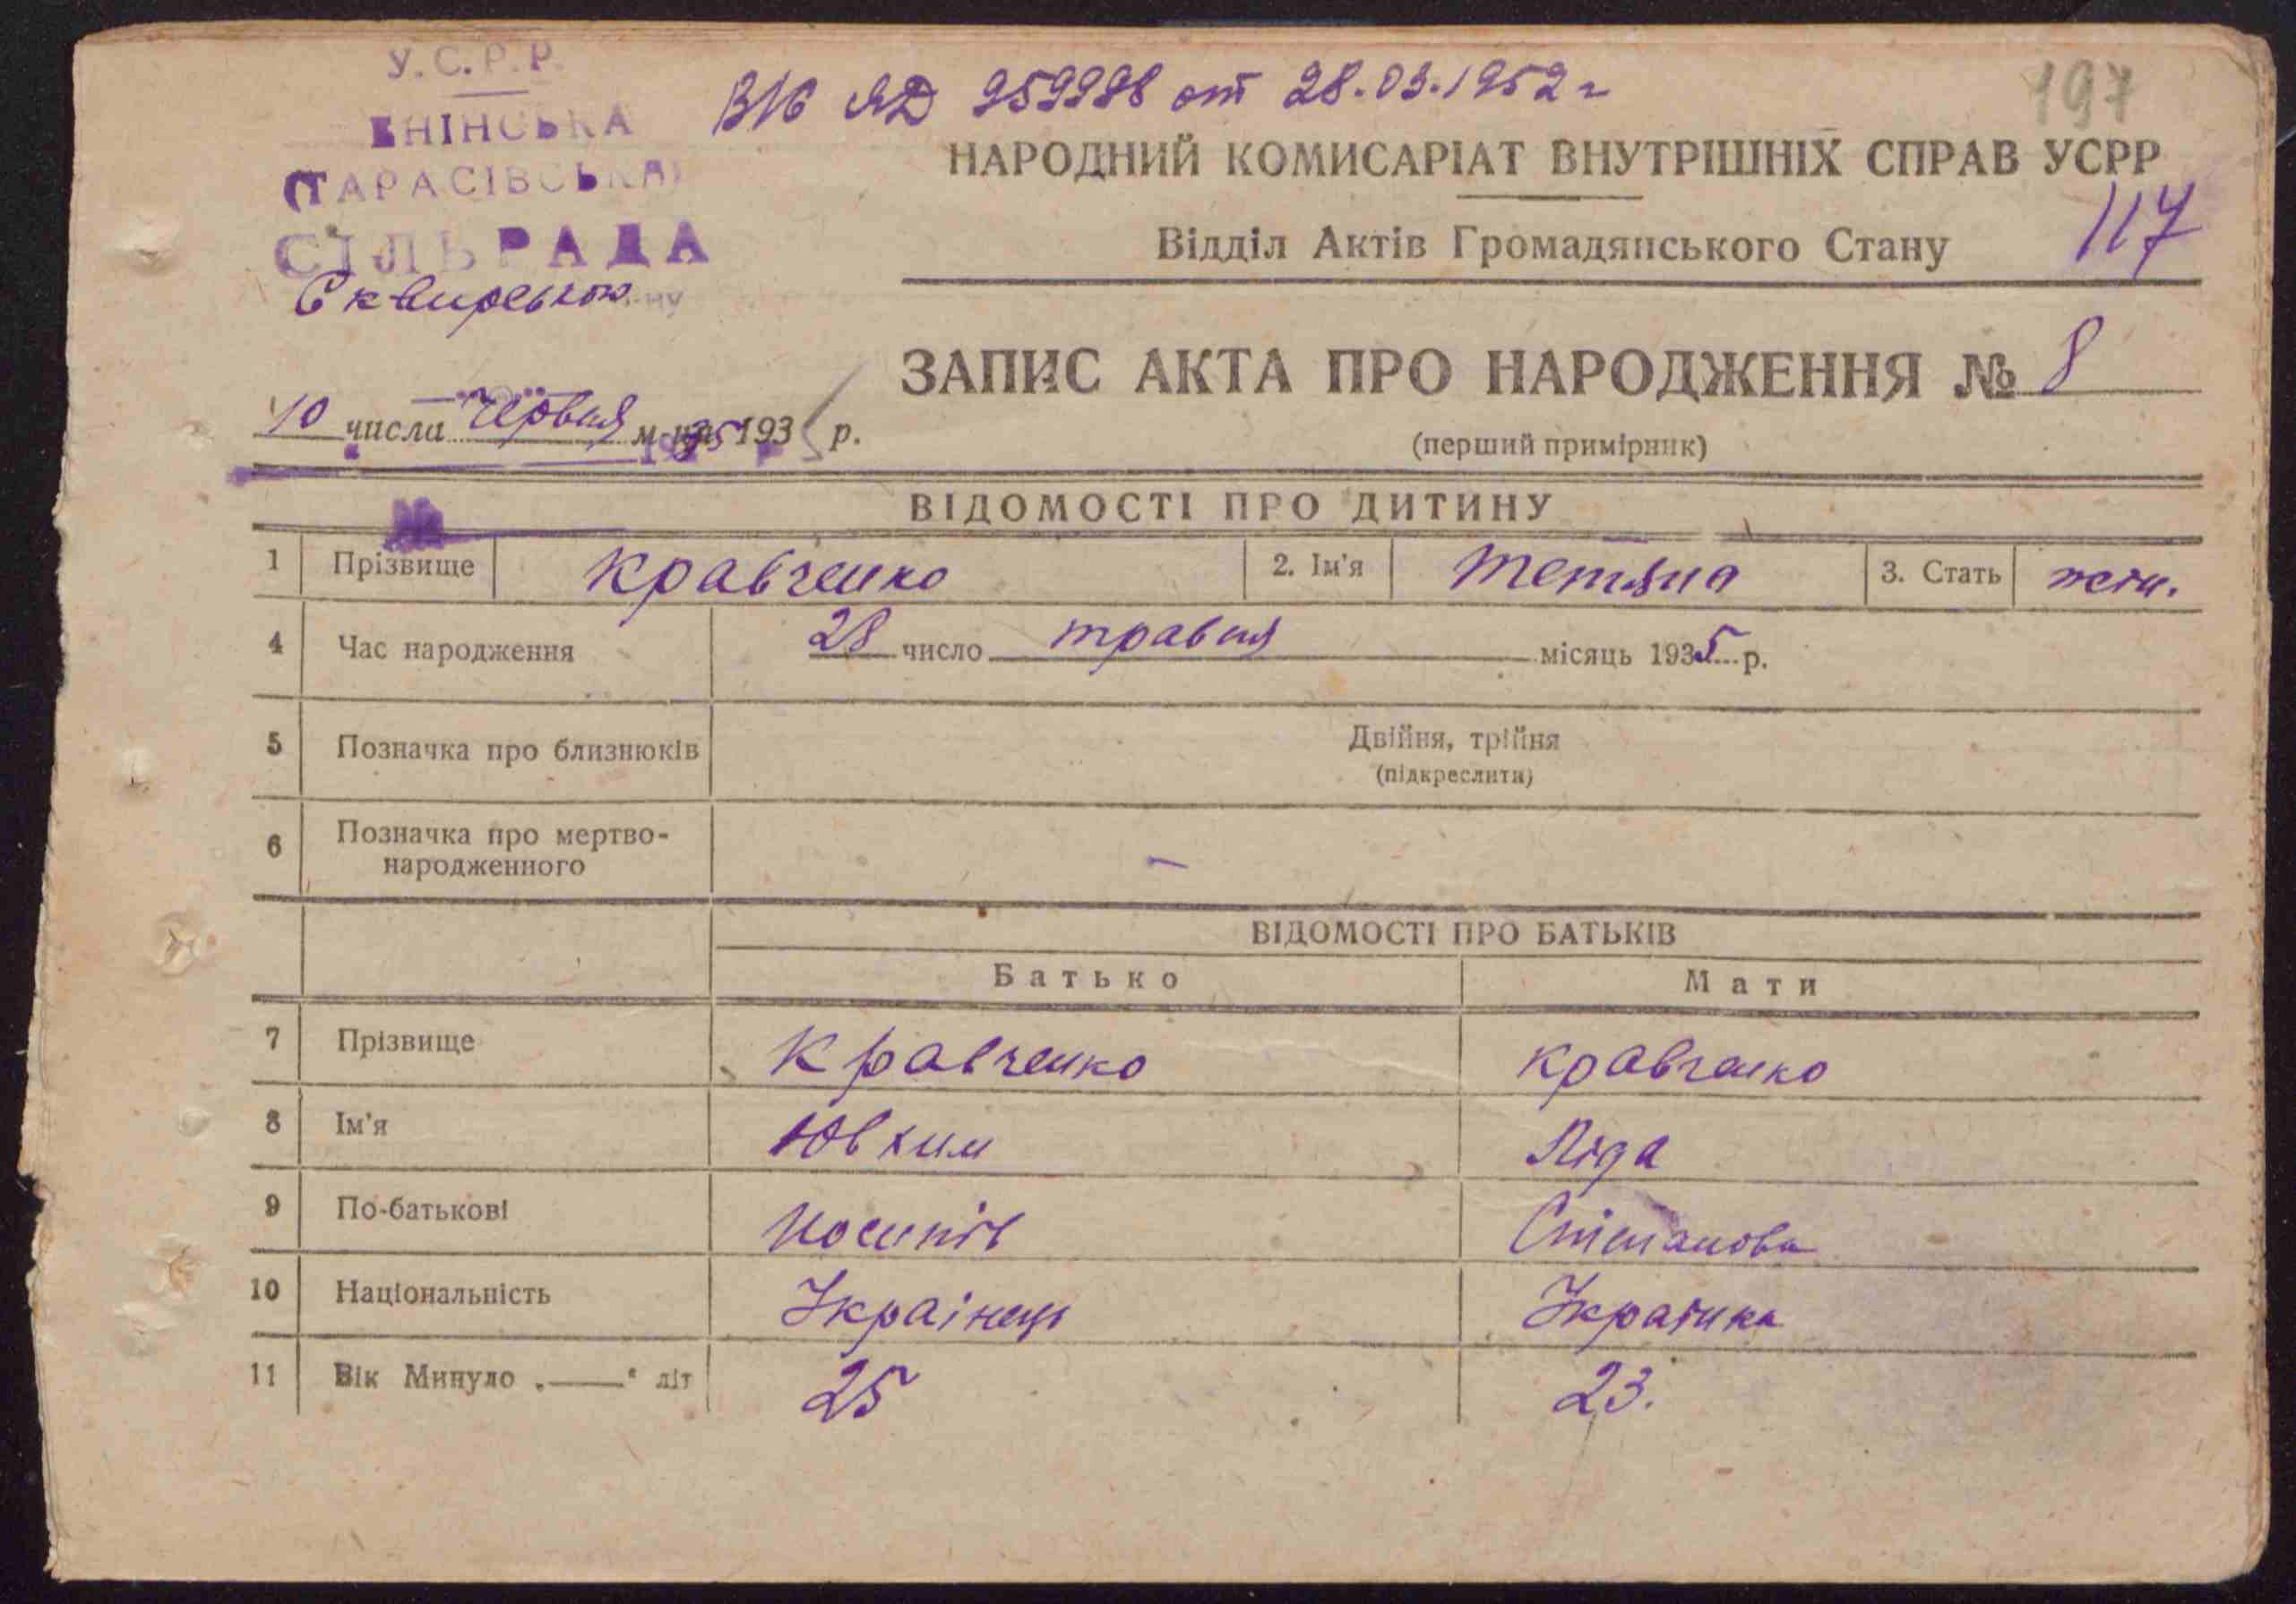 У.С.Р.Р.
(ТАРАСІВСЬКА)
СІЛЬРАДА
ЯД 959998 от 28.03.1952 г
197
НАРОДНИЙ КОМИСАРІАТ ВНУТРІШНІХ СПРАВ УСРР
117
Відділ Актів Громадянського Стану
ЗАПИС АКТА ПРО НАРОДЖЕННЯ № 8
(перший примірник)
10 числа червня м-ця 1935 р.
ВІДОМОСТІ ПРО ДИТИНУ
1 Прізвище Кравченко 2. Ім'я Тетяна 3. Стать жін.
4 Час народження 28 число травня місяць 1935 р.
5 Позначка про близнюків Двійня, трійня
(підкреслити)
6 Позначка про мертво-
народженного –
ВІДОМОСТІ ПРО БАТЬКІВ
Батько Мати
7 Прізвище Кравченко Кравченко
8 Ім'я Ювхим Ліда
9 По-батькові Йосипів Степанова
10 Національність Українець Українка
11 Вік Минуло „——“ літ 25 23.